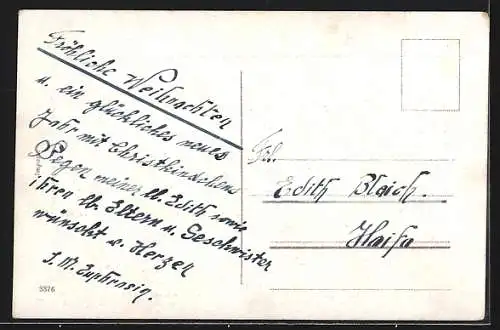 Fröhliche Weihnachten
u. ein glückliches neues
Jahr mit Christkindchens
Segen meiner lb. Edith sowie
ihren lb. Eltern u. Geschwister
wünscht v. Herzen
S. M. Euphrosin.
Frl.
Edith Bleich.
Haifa
3376